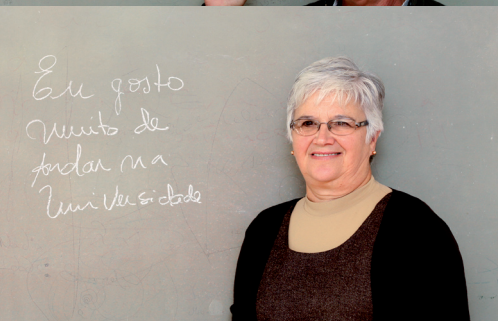 Eu gosto
muito de
andar na
Universidade